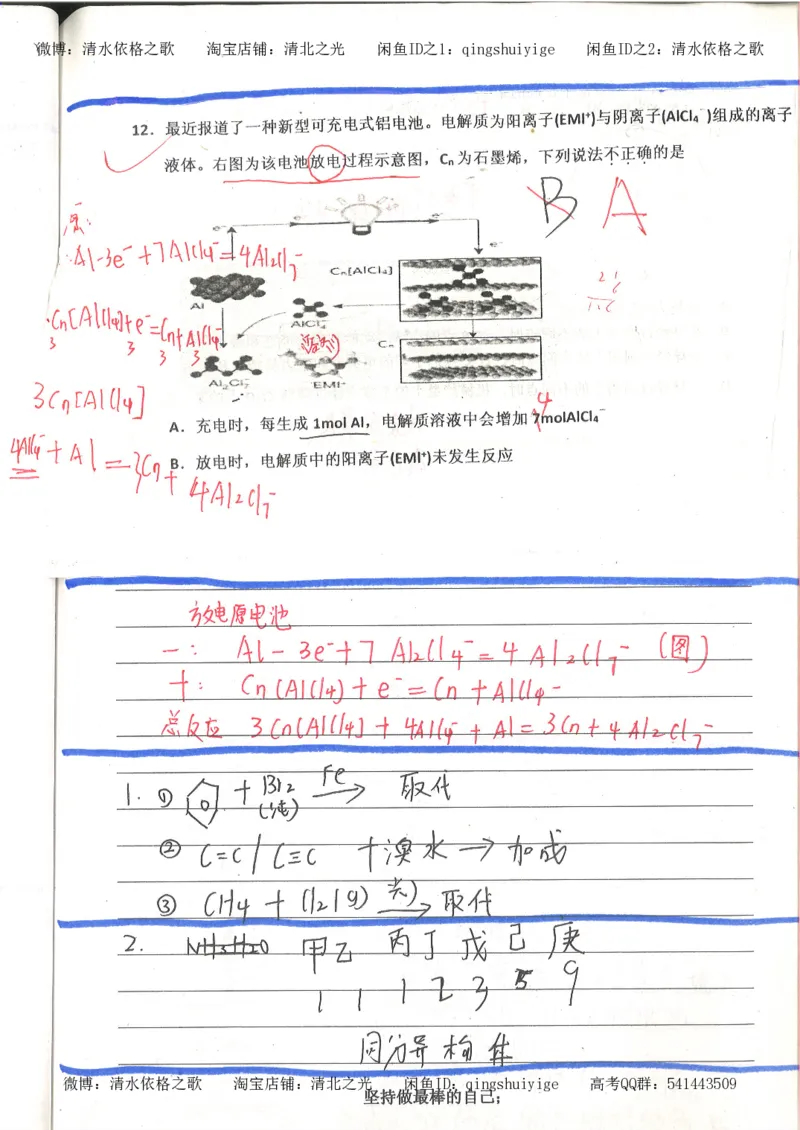 微博：清水依格之歌 淘宝店铺：清北之光 闲鱼ID之1：qingshuiyige 闲鱼ID之2：清水依格之歌
12. 最近报道了一种新型可充电式铝电池。电解质为阳离子(EMI⁺)与阴离子(AlCl₄⁻)组成的离子
液体。右图为该电池放电过程示意图，Cₙ为石墨烯，下列说法不正确的是
B A
Al-3e⁻+7AlCl₄⁻=4Al₂Cl₇⁻
e⁻ e⁻ e⁻ e⁻
Cₙ[AlCl₄]
Al
Cₙ[AlCl₄]+e⁻=Cₙ+AlCl₄⁻
3 3 3 3
AlCl₄⁻
Cₙ
Al₂Cl₇⁻ EMI⁺
3Cₙ[AlCl₄]
4
A．充电时，每生成 1mol Al，电解质溶液中会增加 7molAlCl₄⁻
4AlCl₄⁻+Al=3Cₙ+
B．放电时，电解质中的阳离子(EMI⁺)未发生反应
4Al₂Cl₇⁻
放电原电池
一： Al-3e⁻+7Al₂Cl₄⁻=4Al₂Cl₇⁻ (图)
十： Cn(AlCl₄)+e⁻=Cn+AlCl₄⁻
总反应 3Cn[AlCl₄]+4AlCl₄⁻+Al=3Cn+4Al₂Cl₇⁻
1. ① + Br₂ Fe→ 取代
(纯)
② C=C/C≡C +溴水→加成
③ CH₄+Cl₂(g) 光→取代
2. NH₃·H₂O 甲乙 丙丁戊己庚
1 1 1 2 3 5 9
同分异构体
微博：清水依格之歌 淘宝店铺：清北之光 闲鱼ID：qingshuiyige 高考QQ群：541443509
坚持做最棒的自己；